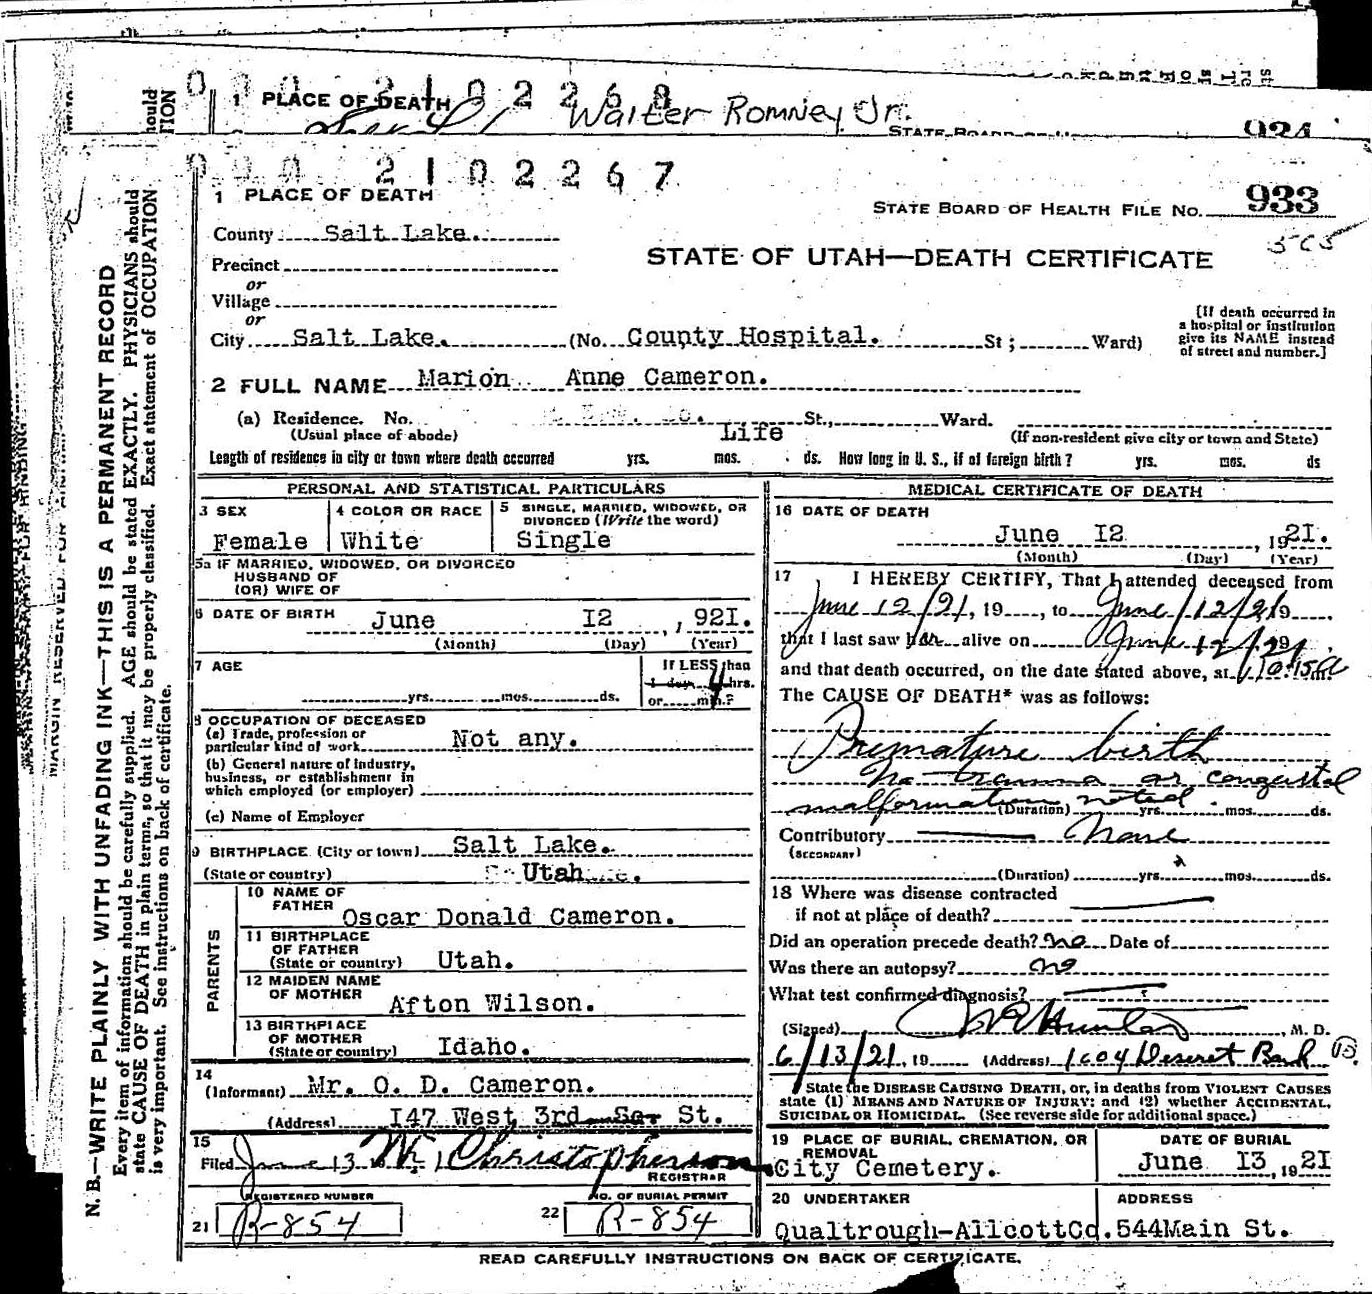 0 0 0 2 1 0 2 2 6 8
1 PLACE OF DEATH
Walter Romney Jr.
STATE BOARD OF
934
0 0 0 2 1 0 2 2 6 7
1 PLACE OF DEATH
STATE BOARD OF HEALTH FILE No. 933
County Salt Lake.
STATE OF UTAH—DEATH CERTIFICATE
Precinct
or
Village
or
City Salt Lake. (No. County Hospital. St; Ward)
[If death occurred in
a hospital or institution
give its NAME instead
of street and number.]
2 FULL NAME Marion Anne Cameron.
(a) Residence. No. St., Ward.
(Usual place of abode) Life (If non-resident give city or town and State)
Length of residence in city or town where death occurred yrs. mos. ds. How long in U. S., if of foreign birth? yrs. mos. ds
PERSONAL AND STATISTICAL PARTICULARS
3 SEX 4 COLOR OR RACE 5 SINGLE, MARRIED, WIDOWED, OR
DIVORCED (Write the word)
Female White Single
5a IF MARRIED, WIDOWED, OR DIVORCED
HUSBAND OF
(OR) WIFE OF
6 DATE OF BIRTH June I2 , 92I.
(Month) (Day) (Year)
7 AGE If LESS than
1 day 4 hrs.
yrs. mos. ds. or min.?
8 OCCUPATION OF DECEASED
(a) Trade, profession or
particular kind of work Not any.
(b) General nature of industry,
business, or establishment in
which employed (or employer)
(c) Name of Employer
9 BIRTHPLACE (City or town) Salt Lake.
(State or country) Utah
PARENTS
10 NAME OF
FATHER Oscar Donald Cameron.
11 BIRTHPLACE
OF FATHER
(State or country) Utah.
12 MAIDEN NAME
OF MOTHER Afton Wilson.
13 BIRTHPLACE
OF MOTHER
(State or country) Idaho.
14
(Informant) Mr. O. D. Cameron.
(Address) I47 West 3rd So. St.
15
Filed June 13 Christopherson
REGISTRAR
REGISTERED NUMBER NO. OF BURIAL PERMIT
21 R-854 22 R-854
MEDICAL CERTIFICATE OF DEATH
16 DATE OF DEATH
June I2 , 192I.
(Month) (Day) (Year)
17 I HEREBY CERTIFY, That I attended deceased from
June 12/21, 19 , to June/12/21 19
that I last saw her alive on June 12/21 19
and that death occurred, on the date stated above, at 10:15 m.
The CAUSE OF DEATH* was as follows:
Premature birth
No trauma or congenital
malformation noted
(Duration) yrs. mos. ds.
Contributory None
(SECONDARY)
(Duration) yrs. mos. ds.
18 Where was disease contracted
if not at place of death?
Did an operation precede death? No Date of
Was there an autopsy? no
What test confirmed diagnosis?
(Signed) Hunter , M. D.
6/13/21, 19 (Address) 1604 Deseret Bank
State the DISEASE CAUSING DEATH, or, in deaths from VIOLENT CAUSES
state (1) MEANS AND NATURE OF INJURY; and (2) whether ACCIDENTAL,
SUICIDAL OR HOMICIDAL. (See reverse side for additional space.)
19 PLACE OF BURIAL, CREMATION, OR
REMOVAL
City Cemetery.
DATE OF BURIAL
June I3, 192I
20 UNDERTAKER ADDRESS
Qualtrough-AllcottCo. 544Main St.
READ CAREFULLY INSTRUCTIONS ON BACK OF CERTIFICATE.
MARGIN RESERVED FOR BINDING
N. B.—WRITE PLAINLY WITH UNFADING INK—THIS IS A PERMANENT RECORD
Every item of information should be carefully supplied. AGE should be stated EXACTLY. PHYSICIANS should
state CAUSE OF DEATH in plain terms, so that it may be properly classified. Exact statement of OCCUPATION
is very important. See instructions on back of certificate.